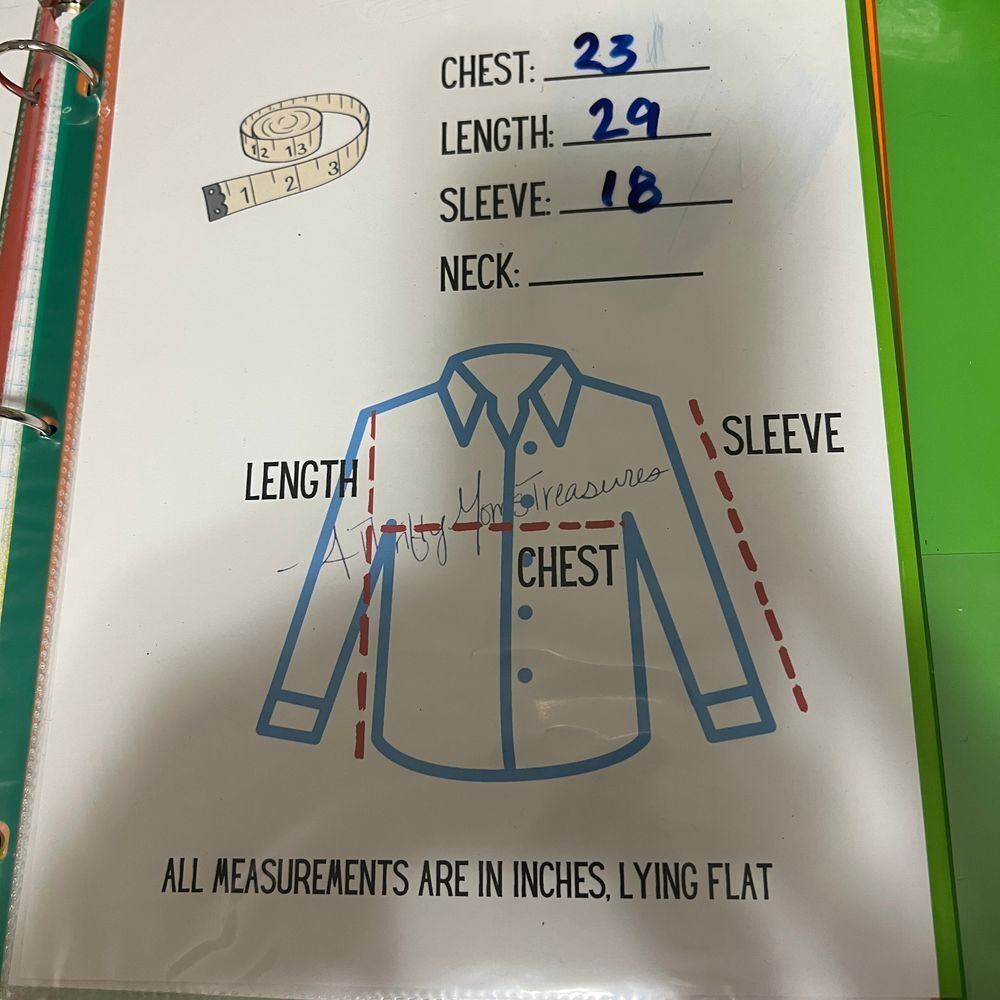 CHEST: 23
LENGTH: 29
SLEEVE: 18
NECK:
12 13
1 2 3
SLEEVE
LENGTH
- A Thrifty Mom's Treasures
CHEST
ALL MEASUREMENTS ARE IN INCHES, LYING FLAT